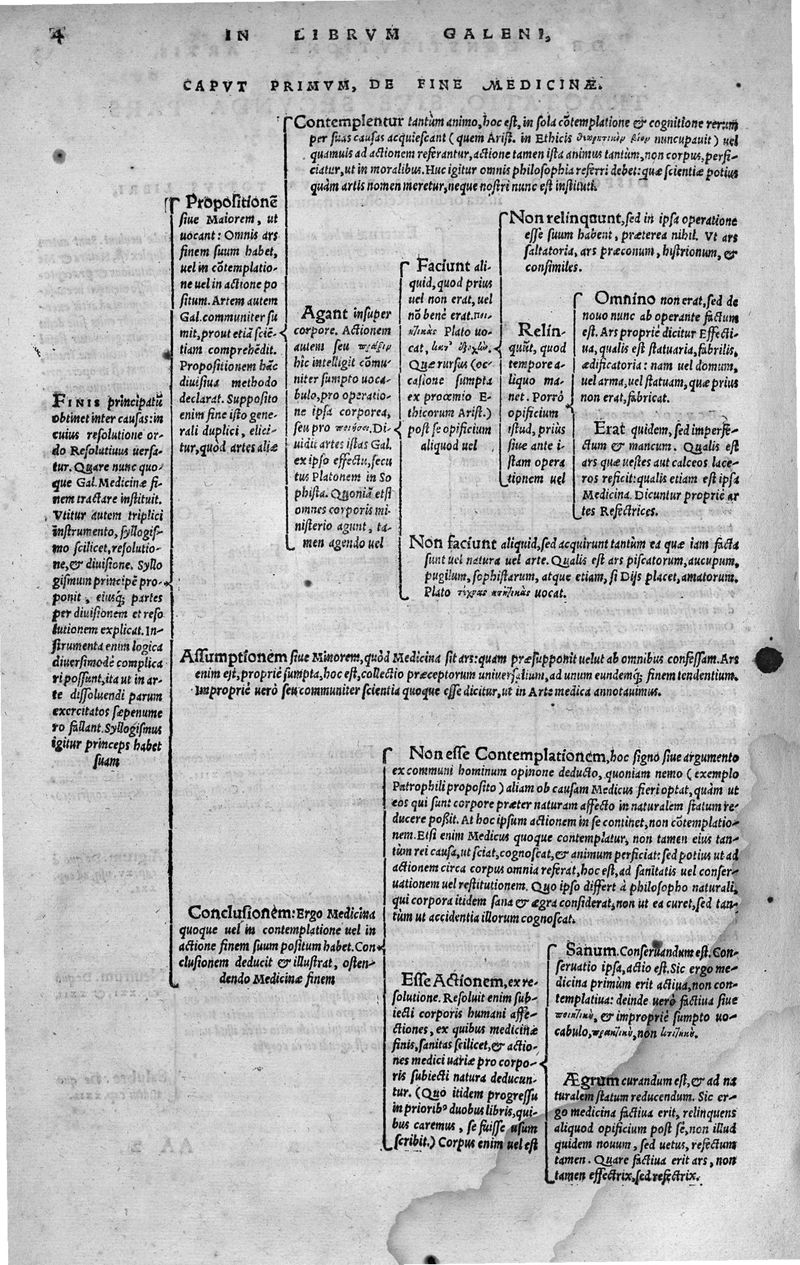 4 IN LIBRVM GALENI,
CAPVT PRIMVM, DE FINE MEDICINÆ.
FINIS principatũ
obtinet inter causas: in
cuius resolutione or-
do Resolutiuus uersa-
tur. Quare nunc quo-
que Gal. Medicinæ fi-
nem tractare instituit.
Vtitur autem triplici
instrumento, syllogis-
mo scilicet, resolutio-
ne, & diuisione. Syllo
gismum principẽ pro-
ponit, eiusq; partes
per diuisionem et reso
lutionem explicat. In-
strumenta enim logica
diuersimodè complica
ri possunt, ita ut in ar-
te dissoluendi parum
exercitatos sæpenume
ro fallant. Syllogismus
igitur princeps habet
suam
Propositionẽ
siue Maiorem, ut
uocant: Omnis ars
finem suum habet,
uel in cõtemplatio-
ne uel in actione po
situm. Artem autem
Gal. communiter su
mit, prout etiã sciẽ-
tiam comprehẽdit.
Propositionem hãc
diuisiua methodo
declarat. Supposito
enim fine isto gene-
rali duplici, elici-
tur, quòd artes aliæ
Contemplentur tantùm animo, hoc est, in sola cõtemplatione & cognitione rerum
per suas causas acquiescant (quem Arist. in Ethicis θεωρητικὸν βίον nuncupauit) uel
quamuis ad actionem referantur, actione tamen ista animus tantùm, non corpus, perfi-
ciatur, ut in moralibus. Huc igitur omnis philosophia referri debet: quæ scientiæ potius
quàm artis nomen meretur, neque nostri nunc est instituti.
Agant insuper
corpore. Actionem
autem seu πρᾶξιν
hic intelligit cõmu-
niter sumpto uoca-
bulo, pro operatio-
ne ipsa corporea,
seu pro ποιήσει. Di-
uidit artes istas Gal.
ex ipso effectu, secu
tus Platonem in So
phista. Quoniã etsi
omnes corporis mi-
nisterio agunt, ta-
men agendo uel
Faciunt ali-
quid, quod prius
uel non erat, uel
nõ benè erat. ποι-
ητικὰς Plato uo-
cat,
Quæ rursus (oc-
casione sumpta
ex proœmio E-
thicorum Arist.)
post se opificium
aliquod uel
Non relinquunt, sed in ipsa operatione
esse suum habent, præterea nihil. Vt ars
saltatoria, ars præconum, histrionum, &
consimiles.
Relin-
quũt, quod
tempore a-
liquo ma-
net. Porrò
opificium
istud, prius
siue ante i-
stam opera
tionem uel
Omnino non erat, sed de
nouo nunc ab operante factum
est. Ars propriè dicitur Effecti-
ua, qualis est statuaria, fabrilis,
ædificatoria: nam uel domum,
uel arma, uel statuam, quæ prius
non erat, fabricat.
Erat quidem, sed imperfe-
ctum & mancum. Qualis est
ars quæ uestes aut calceos lace-
ros reficit: qualis etiam est ipsa
Medicina. Dicuntur propriè ar
tes Refectrices.
Non faciunt aliquid, sed acquirunt tantùm ea quæ iam facta
sunt uel natura uel arte. Qualis est ars piscatorum, aucupum,
pugilum, sophistarum, atque etiam, si Dijs placet, amatorum.
Plato τέχνας κτητικὰς uocat.
Assumptionem siue Minorem, quòd Medicina sit ars: quam præsupponit uelut ab omnibus confessam. Ars
enim est, propriè sumpta, hoc est, collectio præceptorum uniuersalium, ad unum eundemq; finem tendentium.
Impropriè uerò seu communiter scientia quoque esse dicitur, ut in Arte medica annotauimus.
Conclusionem: Ergo Medicina
quoque uel in contemplatione uel in
actione finem suum positum habet. Con
clusionem deducit & illustrat, osten-
dendo Medicinæ finem
Non esse Contemplationem, hoc signo siue argumento
ex communi hominum opinone deducto, quoniam nemo (exemplo
Patrophili proposito) aliam ob causam Medicus fieri optat, quàm ut
eos qui sunt corpore præter naturam affecto in naturalem statum re-
ducere poßit. At hoc ipsum actionem in se continet, non cõtemplatio-
nem. Etsi enim Medicus quoque contemplatur, non tamen eius tan-
tùm rei causa, ut sciat, cognoscat, & animum perficiat: sed potius ut ad
actionem circa corpus omnia referat, hoc est, ad sanitatis uel conser-
uationem uel restitutionem. Quo ipso differt à philosopho naturali,
qui corpora itidem sana & ægra considerat, non ut ea curet, sed tan-
tùm ut accidentia illorum cognoscat.
Esse Actionem, ex re-
solutione. Resoluit enim sub-
iecti corporis humani affe-
ctiones, ex quibus medicinæ
finis, sanitas scilicet, & actio-
nes medici uariæ pro corpo-
ris subiecti natura deducun-
tur. (Quo itidem progressu
in priorib⁹ duobus libris, qui-
bus caremus, se fuisse usum
scribit.) Corpus enim uel est
Sanum. Conseruandum est. Con-
seruatio ipsa, actio est. Sic ergo me-
dicina primùm erit actiua, non con-
templatiua: deinde uerò factiua siue
ποιητικὴ, & impropriè sumpto uo-
cabulo, πρακτικὴ, non
Ægrum curandum est, & ad na
turalem statum reducendum. Sic er-
go medicina factiua erit, relinquens
aliquod opificium post sẽ, non illud
quidem nouum, sed uetus, refectum
tamen. Quare factiua erit ars, non
tamen effectrix, sed refectrix.